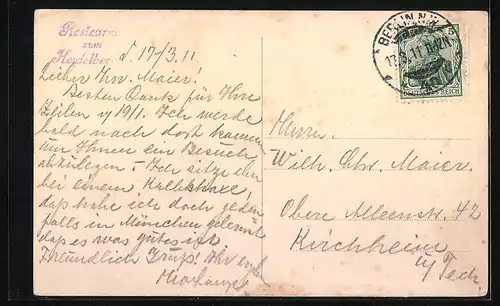 Restaurant
zum
Heidelber
d. 17/3.11.
Lieber Herr Maier!
Besten Dank für Ihre
Zeilen v 19/1. Ich werde
bald nach dort kommen
um Ihnen ein Besuch
abzulegen. – Ich sitze
bei einem
daß habe ich doch jeden
falls in München gelernt
daß es was gutes ist
Freundlich Gruß! Ihr
BERLIN N.W.
17.3.11
DEUTSCHES REICH
Herrn
Wilh. Chr. Maier.
Obere Alleenstr. 42
Kirchheim
u/Teck